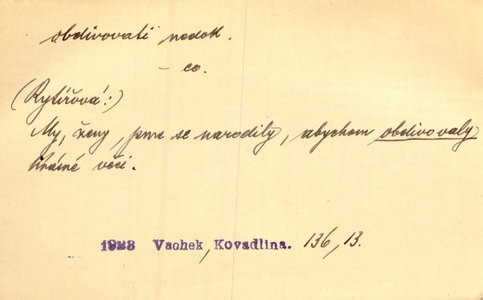 obdivovati nedok.
– co.
(Rytířová:)
My, ženy, jsme se narodily, abychom obdivovaly
krásné věci.
1923 Vachek, Kovadlina. 136, 13.